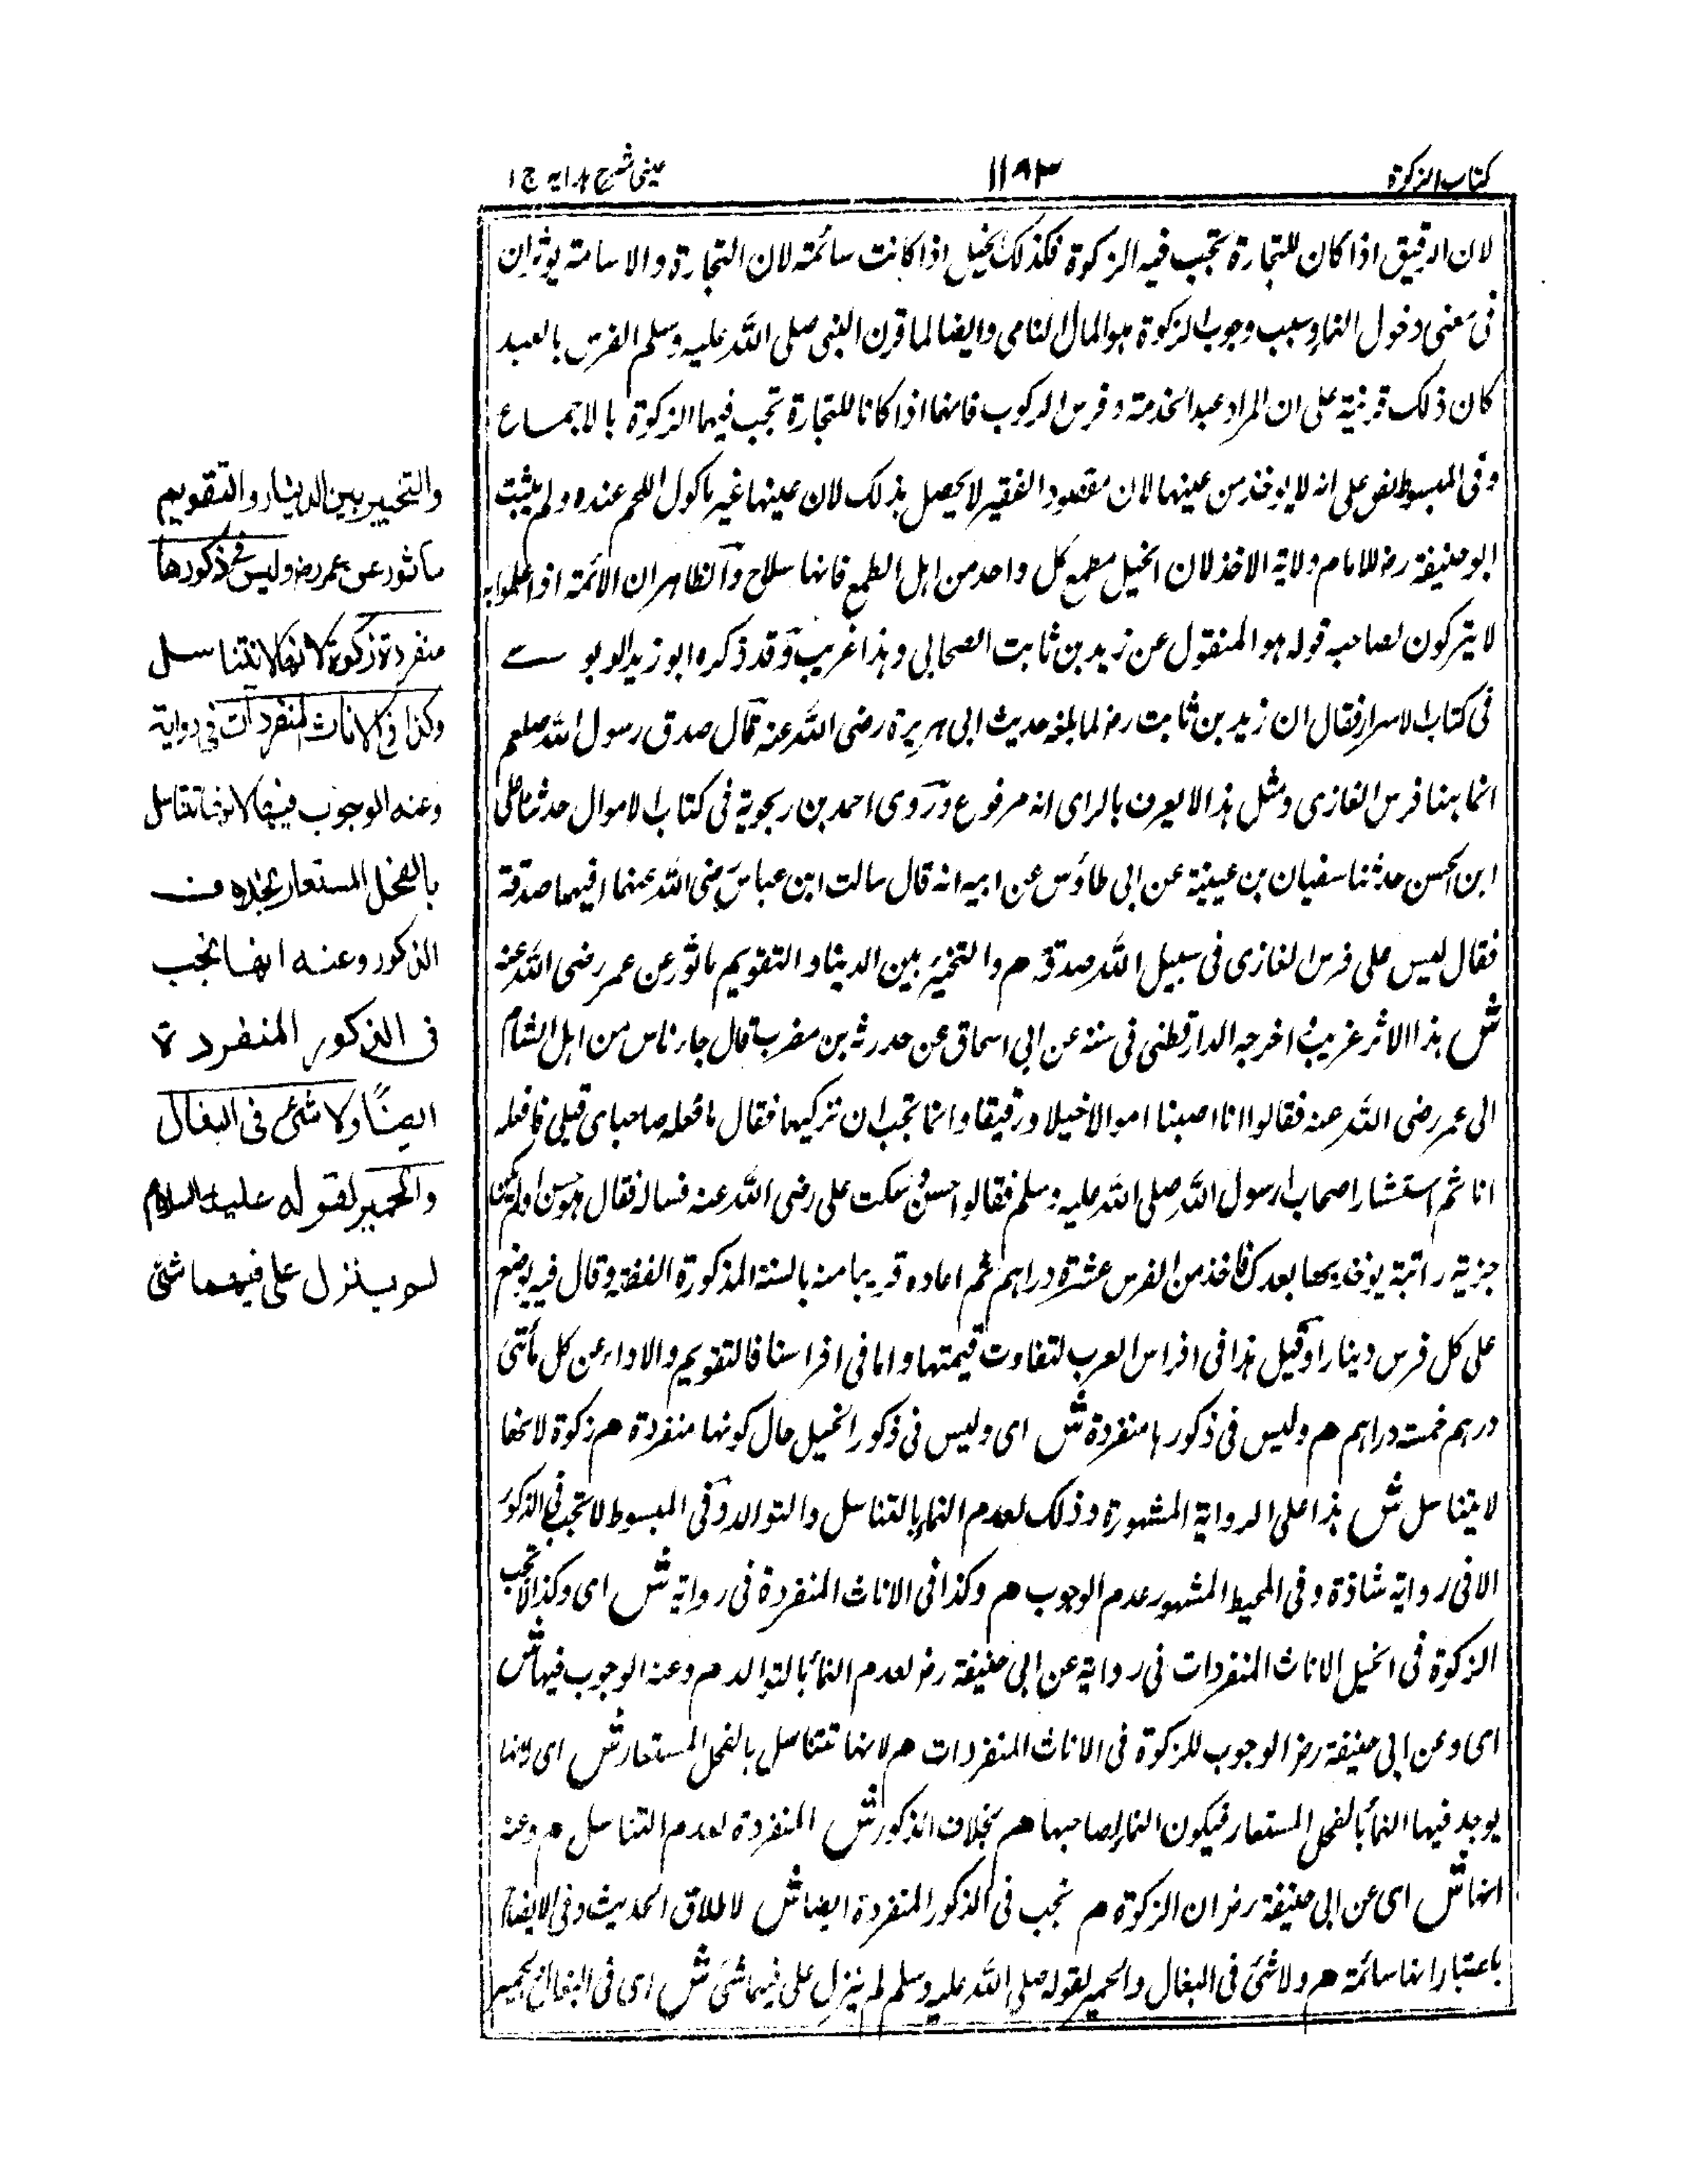 كتاب الزكوة
١١٩٣
عينى شرح هدايه ج ١
لان الرقيق اذا كان للتجارة تجب فيه الزكوة فكذلك الخيل اذا كانت سائمة لان التجارة والاسامة يوثران
فى معنى دخول النماء وسبب وجوب الزكوة هو المال النامى وايضا لما قرن النبى صلى الله عليه وسلم الفرس بالعبد
كان ذلك قرينة على ان المراد عبد الخدمة وفرس الركوب فانهما اذا كانا للتجارة تجب فيهما الزكوة بالاجماع
وفى المبسوط نص على انه لا يوخذ من عينها لان مقصود الفقير لا يحصل بذلك لان عينها غير ماكول اللحم عنده ولم يثبت
ابو حنيفة رض للامام ولاية الاخذ لان الخيل مطمع كل واحد من اهل الطمع فانها سلاح والظاهر ان الائمة اذا علموا به
لا يتركون لصاحبه قوله هو المنقول عن زيد بن ثابت الصحابى وهذا غريب وقد ذكره ابو زيد الدبوسى
فى كتاب الاسرار فقال ان زيد بن ثابت رض لما بلغه حديث ابى هريرة رضى الله عنه قال صدق رسول الله صلعم
انما هنا فرس الغازى ومثل هذا لا يعرف بالراى انه مرفوع وروى احمد بن زنجوية فى كتاب الاموال حدثنا على
ابن الحسن حدثنا سفيان بن عيينة عن ابى طاؤس عن ابيه انه قال سالت ابن عباس رضى الله عنهما افيهما صدقة
فقال ليس على فرس الغازى فى سبيل الله صدقة م والتخيير بين الدينار والتقويم ماثور عن عمر رضى الله عنه
ش هذا الاثر غريب اخرجه الدارقطنى فى سننه عن ابى اسحاق عن حارثة بن مضرب قال جاء ناس من اهل الشام
الى عمر رضى الله عنه فقالوا انا اصبنا اموالا خيلا ورقيقا وانا نحب ان نزكيها فقال ما فعله صاحباى قبلى فافعله
انا ثم استشار اصحاب رسول الله صلى الله عليه وسلم فقالوا حسن وسكت على رضى الله عنه فساله فقال هو حسن لو لم تكن
جزية راتبة يوخذ بها بعدك فاخذ من الفرس عشرة دراهم ثم اعاده قريبا منه بالسنة المذكورة القصة وقال فيه يوضع
على كل فرس دينارا وقيل هذا فى افراس العرب لتفاوت قيمتها واما فى افراسنا فالتقويم والاداء عن كل مأتى
درهم خمسة دراهم م وليس فى ذكورها منفردة ش اى وليس فى ذكور الخيل حال كونها منفردة م زكوة لانها
لا يتناسل ش هذا على الرواية المشهورة وذلك لعدم النماء بالتناسل والتوالد وفى المبسوط لا تجب فى الذكور
الا فى رواية شاذة وفى المحيط المشهور عدم الوجوب م وكذا فى الاناث المنفردة فى رواية ش اى وكذا لا تجب
الزكوة فى الخيل الاناث المنفردات فى رواية عن ابى حنيفة رض لعدم النماء بالتوالد م وعنه الوجوب فيها ش
اى وعن ابى حنيفة رض الوجوب للزكوة فى الاناث المنفردات م لانها تتناسل بالفحل المستعار ش اى لانها
يوجد فيها النماء بالفحل المستعار فيكون النماء لصاحبها م بخلاف الذكور ش المنفردة لعدم التناسل م وعنه
انها ش اى عن ابى حنيفة رض ان الزكوة م تجب فى الذكور المنفردة ايضا ش لاطلاق الحديث وفى الايضاح
باعتبار انها سائمة م ولا شئ فى البغال والحمير لقوله صلى الله عليه وسلم لم ينزل على فيهما شئ ش اى فى البغال والحمير
والتخيير بين الدينار والتقويم
مأثور عن عمر رض وليس فى ذكورها
منفردة زكوة لانها لا تتناسل
وكذا فى الاناث المنفردات فى رواية
وعنه الوجوب فيها لانها تتناسل
بالفحل المستعار بخلاف
الذكور وعنه انها تجب
فى الذكور المنفردة
ايضًا ولا شئ فى البغال
والحمير لقوله عليه السلام
لم ينزل على فيهما شئ